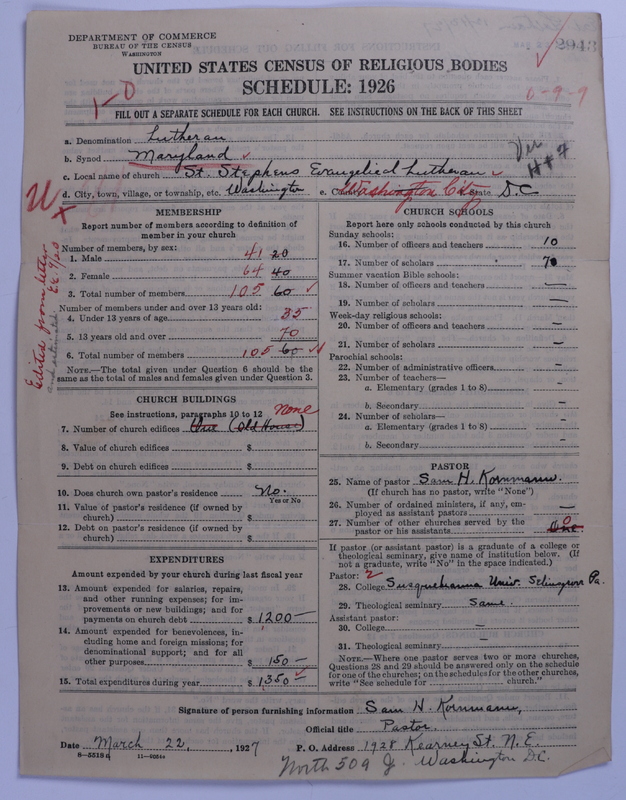 DEPARTMENT OF COMMERCE
BUREAU OF THE CENSUS
WASHINGTON
UNITED STATES CENSUS OF RELIGIOUS BODIES
SCHEDULE: 1926
1-0
6-9-9
FILL OUT A SEPARATE SCHEDULE FOR EACH CHURCH. SEE INSTRUCTIONS ON THE BACK OF THIS SHEET
a. Denomination Lutheran
b. Synod Maryland
c. Local name of church St. Stephens Evangelical Lutheran
d. City, town, village, or township, etc. Washington e. County Washington City State D.C
MEMBERSHIP
Report number of members according to definition of
member in your church
Number of members, by sex:
1. Male 41 20
2. Female 64 40
3. Total number of members 105 60
Number of members under and over 13 years old:
4. Under 13 years of age 35
5. 13 years old and over 70
6. Total number of members 105 60
NOTE.—The total given under Question 6 should be the
same as the total of males and females given under Question 3.
Edited from letter
CHURCH BUILDINGS
See instructions, paragraphs 10 to 12 none
7. Number of church edifices One (Old House)
8. Value of church edifices $
9. Debt on church edifices $
10. Does church own pastor's residence No.
Yes or No
11. Value of pastor's residence (if owned by
church) $
12. Debt on pastor's residence (if owned by
church) $
EXPENDITURES
Amount expended by your church during last fiscal year
13. Amount expended for salaries, repairs,
and other running expenses; for im-
provements or new buildings; and for
payments on church debt $ 1200—
14. Amount expended for benevolences, in-
cluding home and foreign missions; for
denominational support; and for all
other purposes $ 150—
15. Total expenditures during year $ 1,350—
CHURCH SCHOOLS
Report here only schools conducted by this church
Sunday schools:
16. Number of officers and teachers 10
17. Number of scholars 70
Summer vacation Bible schools:
18. Number of officers and teachers —
19. Number of scholars —
Week-day religious schools:
20. Number of officers and teachers —
21. Number of scholars —
Parochial schools:
22. Number of administrative officers —
23. Number of teachers—
a. Elementary (grades 1 to 8) —
b. Secondary —
24. Number of scholars—
a. Elementary (grades 1 to 8) —
b. Secondary —
PASTOR
25. Name of pastor Sam H. Kornmann.
(If church has no pastor, write "None")
26. Number of ordained ministers, if any, em-
ployed as assistant pastors —
27. Number of other churches served by the
pastor or his assistants One 0
If pastor (or assistant pastor) is a graduate of a college or
theological seminary, give name of institution below. (If
not a graduate, write "No" in the space indicated.)
Pastor: 2
28. College Susquehanna Univ. Selinsgrove Pa.
29. Theological seminary Same.
Assistant pastor:
30. College —
31. Theological seminary —
NOTE.—Where one pastor serves two or more churches,
Questions 28 and 29 should be answered only on the schedule
for one of the churches; on the schedules for the other churches,
write "See schedule for church."
Signature of person furnishing information Sam H. Kornmann,
Official title Pastor.
Date March 22, 1927 P. O. Address 1928 Kearney St. N.E.
8-5518a 11-9054
North 509 J. Washington D.C.